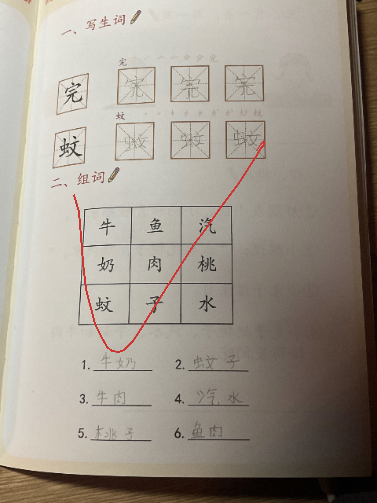 一、写生词
完
完 完 完 完
蚊
蚊 蚊 蚊 蚊
二、组词
牛 鱼 汽
奶 肉 桃
蚊 子 水
1. 牛奶 2. 蚊子
3. 牛肉 4. 汽水
5. 桃子 6. 鱼肉